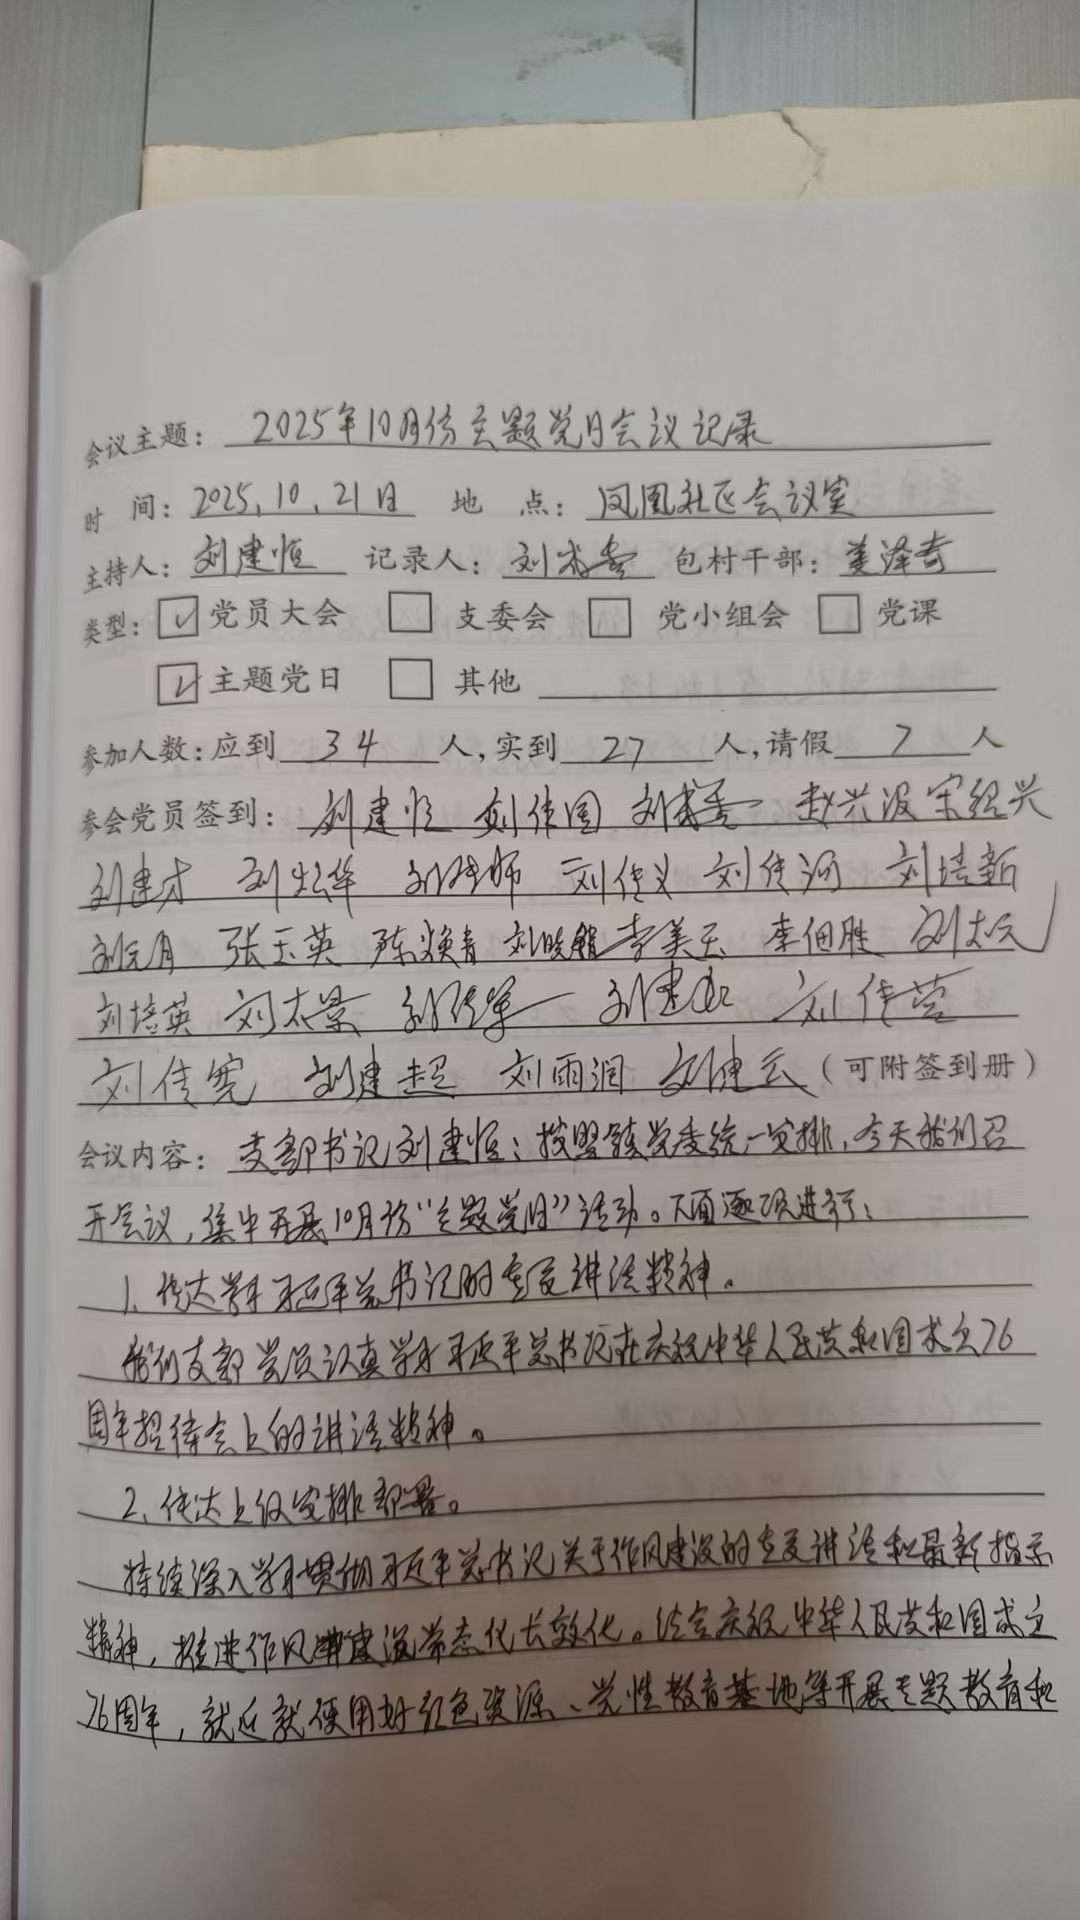 会议主题：2025年10月份主题党日会议记录
时 间：2025.10.21日 地 点：凤凰社区会议室
主持人：刘建恒 记录人：刘 包村干部：姜泽奇
类型：☑党员大会 □支委会 □党小组会 □党课
☑主题党日 □其他
参加人数：应到 34 人，实到 27 人，请假 7 人
参会党员签到：刘建恒 刘传国 刘 赵兴波 宋绍兴
刘建才 刘 刘 师 刘传义 刘传河 刘培新
刘元月 张玉英 陈焕青 刘晓 李美玉 李佃胜 刘太元
刘培英 刘太景 刘传军 刘建 刘传营
刘传宽 刘建超 刘雨润 刘建云（可附签到册）
会议内容：支部书记刘建恒：按照镇党委统一安排，今天我们召
开会议，集中开展10月份“主题党日”活动。下面逐项进行：
1、传达学习习近平总书记的重要讲话精神。
我们支部党员认真学习习近平总书记在庆祝中华人民共和国成立76
周年招待会上的讲话精神。
2、传达上级安排部署。
持续深入学习贯彻习近平总书记关于作风建设的重要讲话和最新指示
精神，推进作风建设常态化长效化。结合庆祝中华人民共和国成立
76周年，就近就便用好红色资源、党性教育基地等开展专题教育和